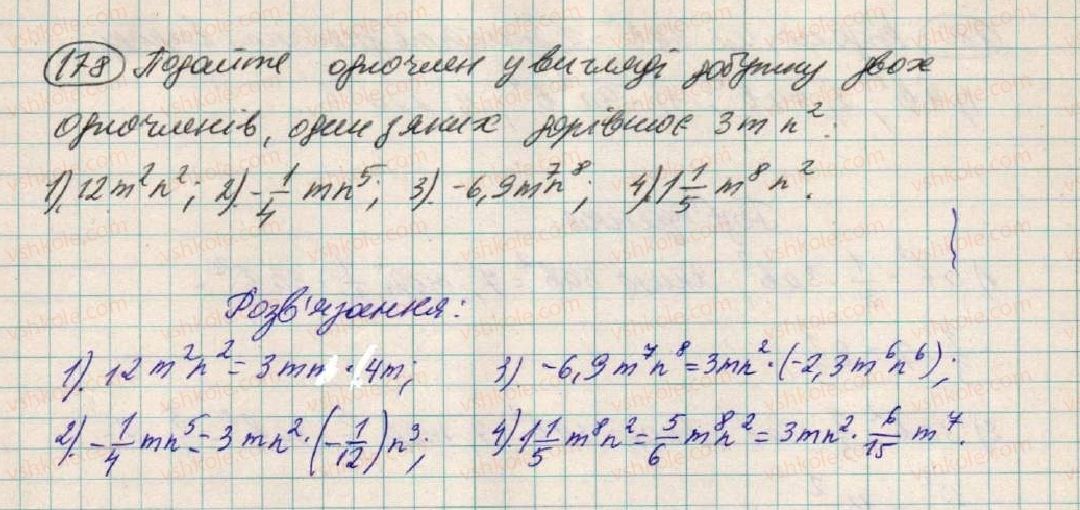 178 Подайте одночлен у вигляді добутку двох
одночленів, один з яких дорівнює 3mn².
1). 12m²n²; 2). -1/4 mn⁵; 3). -6,9m⁷n⁸; 4). 1 1/5 m⁸n².
Розв'язання:
1). 12m²n² = 3mn · 4m;
2). -1/4 mn⁵ = 3mn² · (-1/12)n³;
3) -6,9m⁷n⁸ = 3mn² · (-2,3m⁶n⁶);
4). 1 1/5 m⁸n² = 5/6 m⁸n² = 3mn² · 6/15 m⁷.